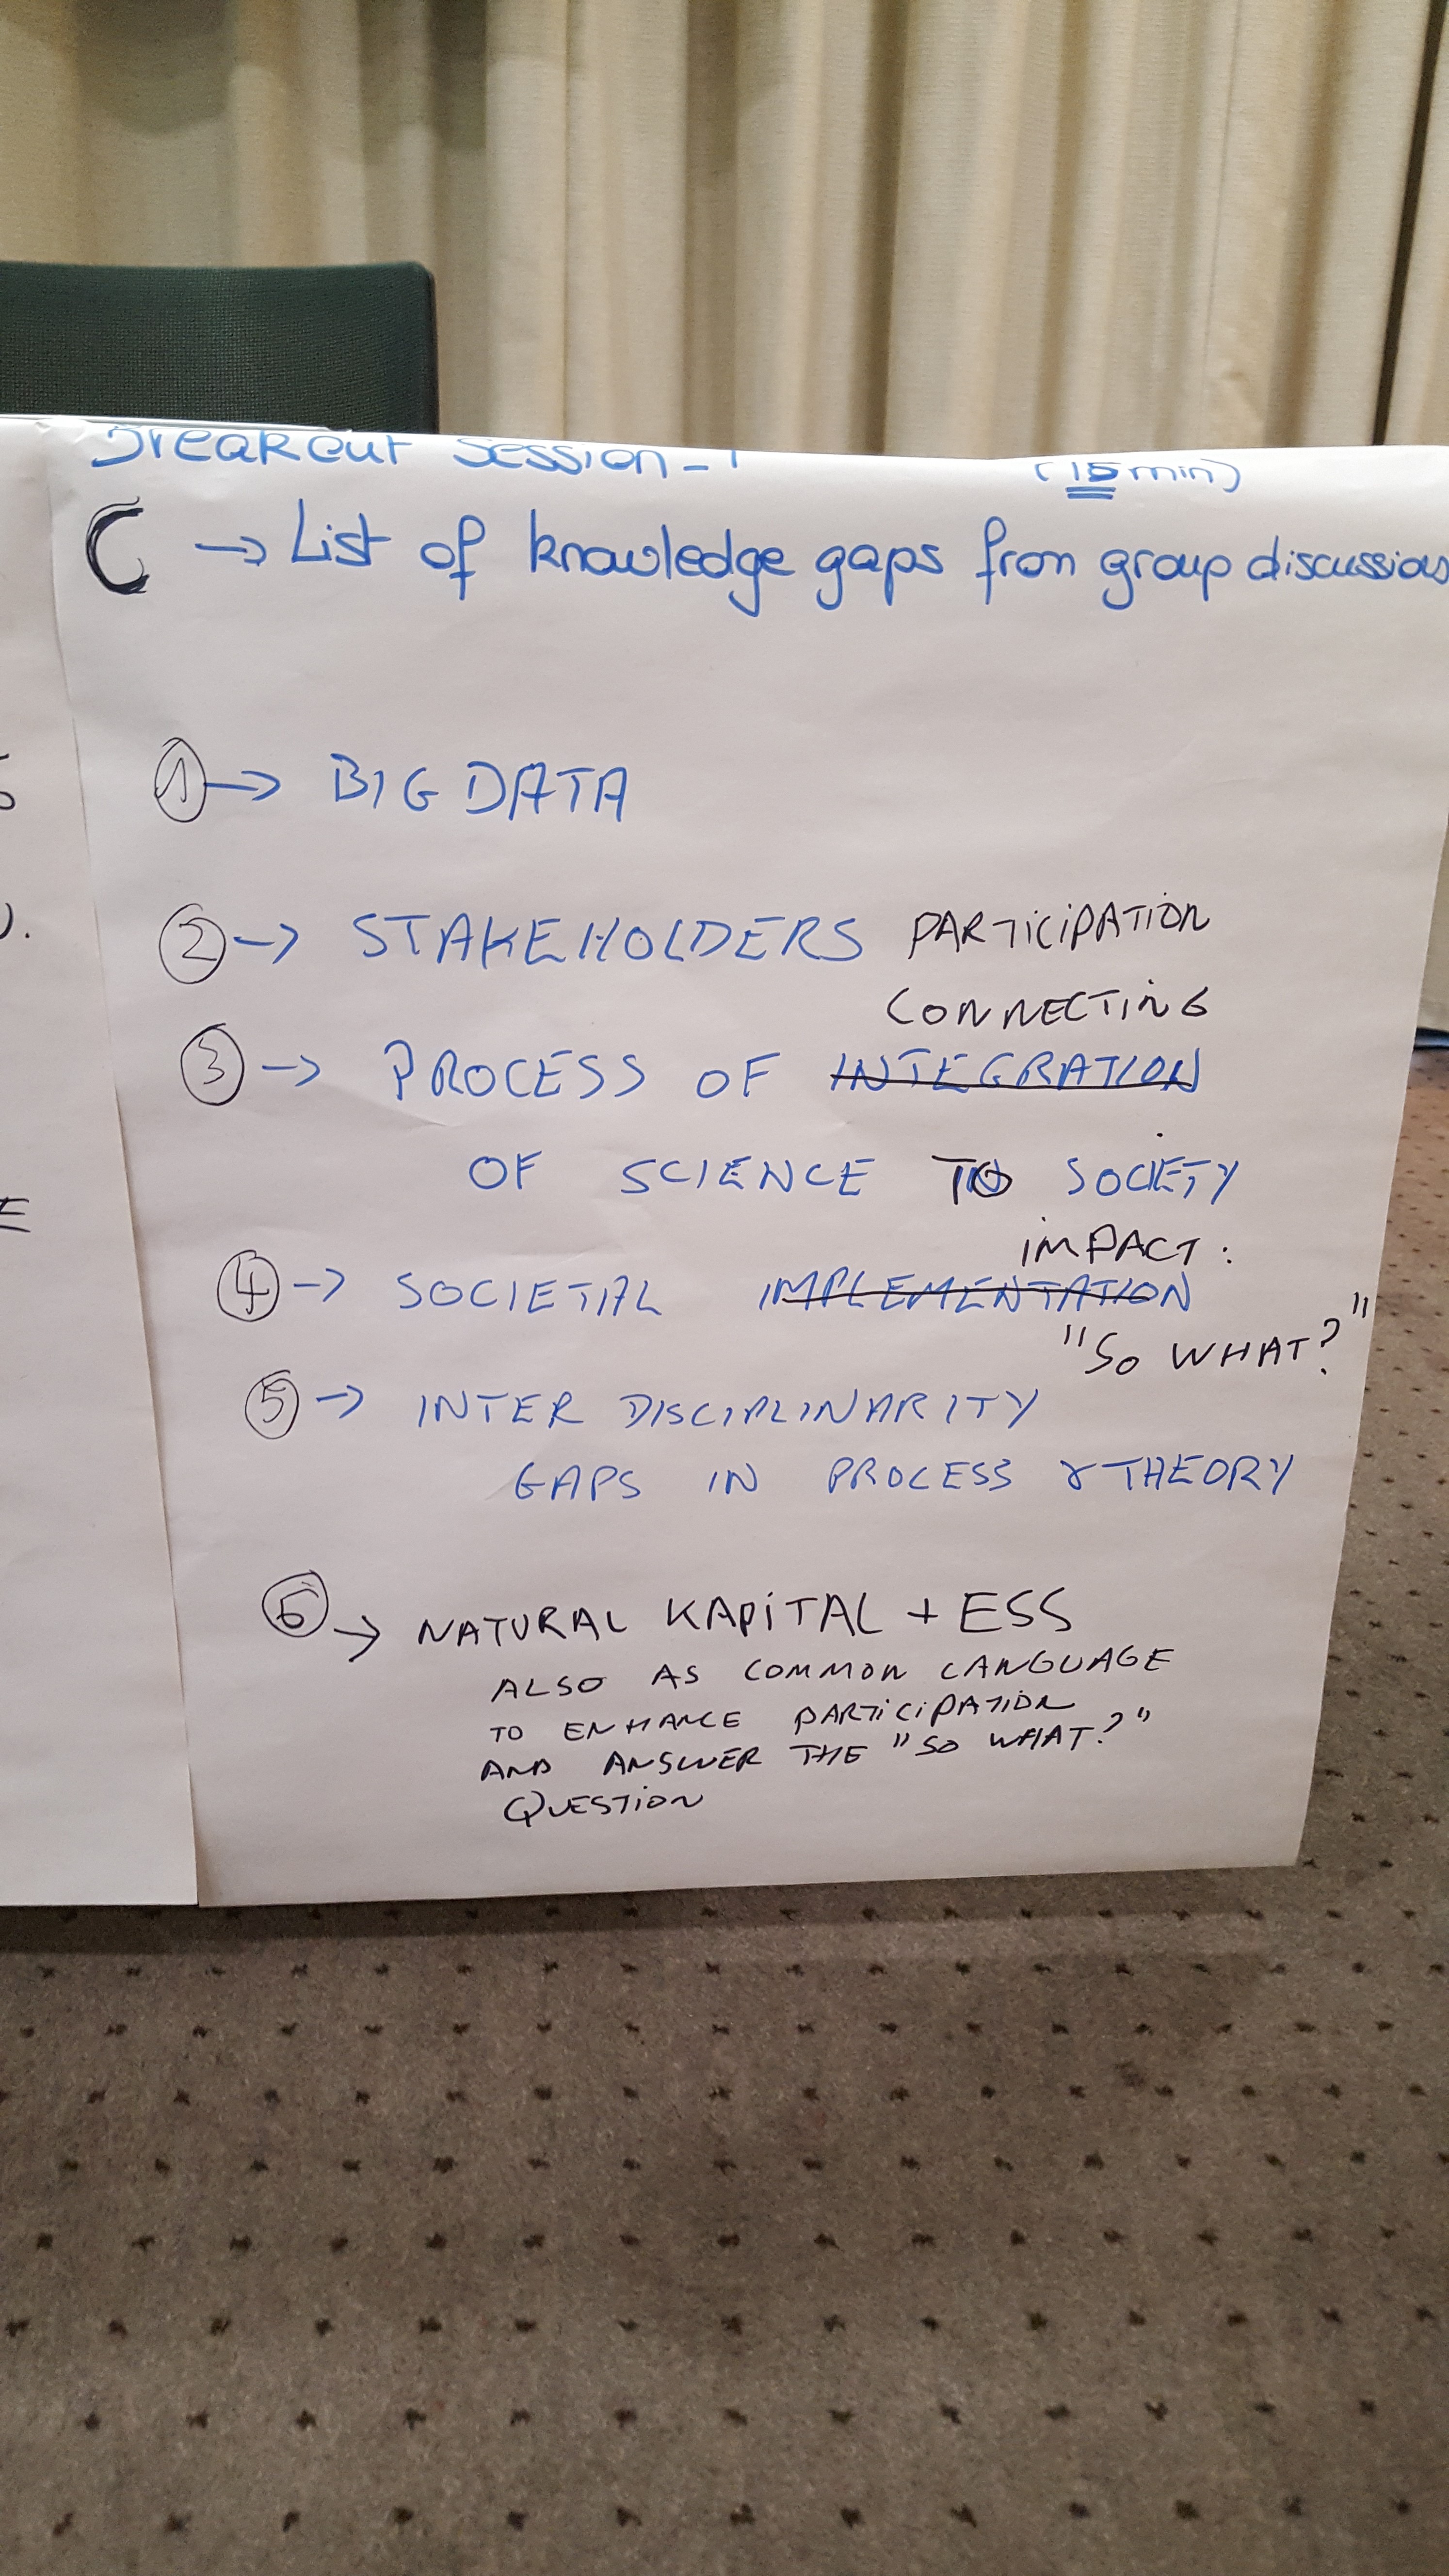 Breakout Session - 1 (15 min)
C → List of knowledge gaps from group discussions
① → BIG DATA
② → STAKEHOLDERS PARTICIPATION
CONNECTING
③ → PROCESS OF INTEGRATION
OF SCIENCE TO SOCIETY
IMPACT:
④ → SOCIETIAL IMPLEMENTATION
"SO WHAT?"
⑤ → INTER DISCIPLINARITY
GAPS IN PROCESS & THEORY
⑥ → NATURAL KAPITAL + ESS
ALSO AS COMMON LANGUAGE
TO ENHANCE PARTICIPATION
AND ANSWER THE "SO WHAT?"
QUESTION